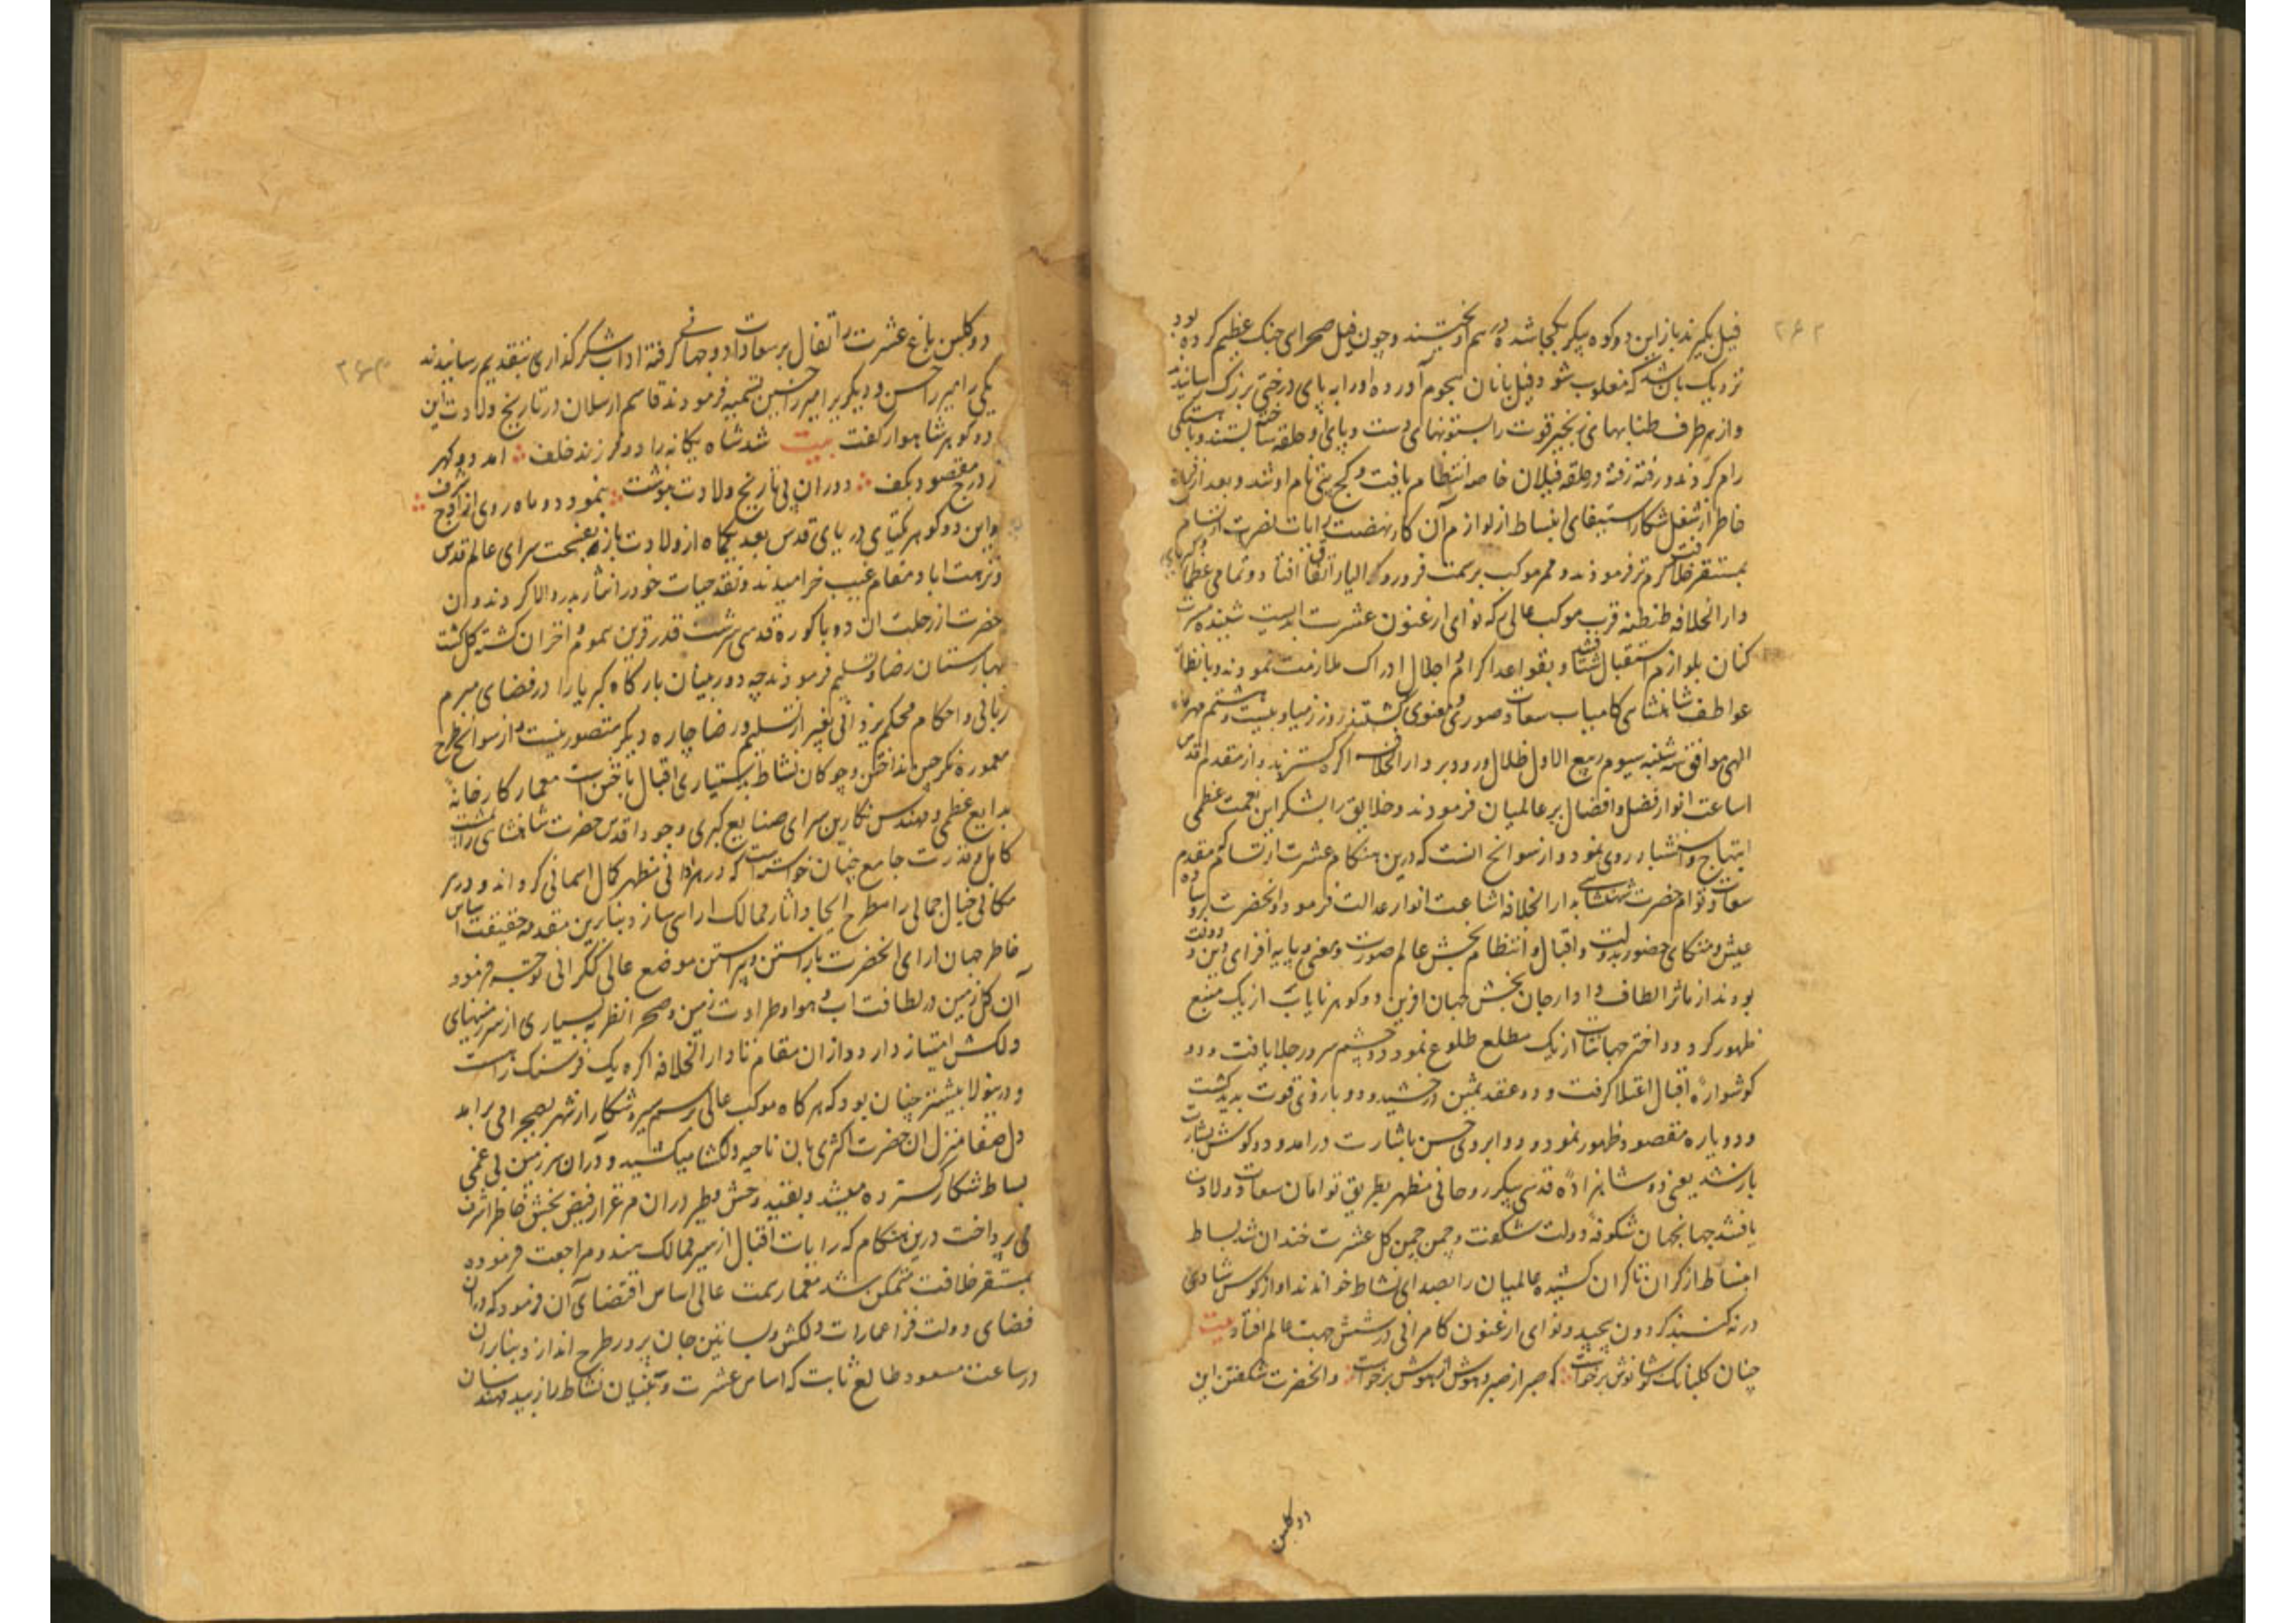 ۲۶۲
فیل بگیرند باز این دو کوه پیکر یکجا شده در هم آویختند و چون فیل صحرای جنک عظیم کرده بود
نزدیک بان شد که مغلوب شود فیل بانان هجوم آورده اورا به پای درختی بزرک رسانیدند
و از هر طرف طنابهای زنجیر قوت را بستونهای دست و پای او حلقه ساخته بستند و باهستگی
رام کردند و رفته رفته در حلقه فیلان خاصه انتظام یافت و کج پتی نام او شد و بعد از فراغ
خاطر از شغل شکار استیفای انبساط از لوازم آن کار نهضت رایات نصرت ارتسام
بمستقر خلافت مکرم تر فرمودند و ممر موکب بر سمت نرور و کوالیار اتفاق افتاد و تمامی عظما
دار الخلافه طنطنه قرب موکب عالی که نوای ارغنون عشرت ابدیست شنیده مسرت
کنان بلوازم استقبال شتافتند و بقواعد اکرام و اجلال ادراک ملازمت نمودند و بانظار
عواطف شاهنشاهی کامیاب سعادت صوری و معنوی کشتند روز زمیاد بیست و هشتم مهر ماه
الهی موافق سه شنبه سیوم ربیع الاول ظلال ورود بر دار الخلافه اکره کستردند و از مقدم اقدس
اساعت انوار فضل و افضال بر عالمیان فرمودند و خلایق را بشکر این نعمت عظمی
ابتهاج و استبشار روی نمود و از سوانح انست که درین هنکام عشرت ارتسام که مقدم
سعادت توام حضرت شهنشاهی بدار الخلافه اشاعت انوار عدالت فرمود و انحضرت بر وساده
عیش و متکای حضور بدولت و اقبال و انتظام بخش عالم صورت و معنی و پایه افزای دین و دولت
بودند از ماثر الطاف دادار جان بخش جهان افرین دو کوهر نایاب از یک منبع
ظهور کرد و دو اختر جهانتاب از یک مطلع طلوع نمود دو چشم سرور جلا یافت و دو
کوشواره اقبال اعتلا کرفت و دو عقد ثمین درخشید و دو بازوی قوت پدید کشت
و دو باره مقصود ظهور نمود و دو ابروی حسن باشارت درامد و دو کوش بشارت
باز شد یعنی دو شاهزاده قدسی پیکر روحانی مظهر بطریق توامان سعادت ولادت
یافتند جهانجهان شکوفه دولت شکفت و چمن چمن کل عشرت خندان شد بساط
انبساط از کران تا کران کشیده عالمیان را بصدای نشاط خواندند آواز کوس شادی
در نه کنبد کردون پیچید و نوای ارغنون کامرانی در شش جهت عالم افتاد بیت
چنان کلبانک شانوش برخواست که صبر از صبر و هوش از هوش برخواست و انحضرت شکفتن این
دو کلبن
۲۶۳
دو کلبن باغ عشرت را تفال بر سعادت دو جهانی کرفته اداب شکر کذاری بتقدیم رسانیدند
یکی را میر زا حسن و دیکر را میر زا حسین تسمیه فرمودند قاسم ارسلان در تاریخ ولادت این
دو کوهر شاهوار کفت بیت شد شاه یکانه را دو فرزند خلف امد دو کهر
ز درج مقصود بکف دوران پی تاریخ ولادت بنوشت بنمود دو ماه روی از اوج شرف
و این دو کوهر یکتای دریای قدس بعد یکماه از ولادت باز بنفحت سرای عالم قدس
و نزهت اباد مقام غیب خرامیدند و نقد حیات خود را نثار پدر والا کردند و ان
حضرت از رحلت ان دو باکوره قدسی سرشت قدر قرین سموم احزان کشته کل کشت
بهارستان رضا و تسلیم فرمودند چه دوربینان بارکاه کبریا را در قضای مبرم
ربانی و احکام محکم یزدانی بغیر از تسلیم و رضا چاره دیکر متصور نیست و از سوانح طرح
معموره نکرچین انداختن و چوکان نشاط بدستیاری اقبال باختن است معمار کارخانه
بدایع عظمی و مهندس نکارین سرای صنایع کبری وجود اقدس حضرت شاهنشاهی را نشئه
کامل و قدرت جامع چنان خواسته است که در هر ا فی مظهر کمال اسمانی کرداند و در هر
مکانی خیال جمالی را مطرح ایجاد اثار ممالک ارای سازد بنابرین مقدمه حقیقت اساس
خاطر جهان ارای انحضرت باراستن و پیراستن موضع عالی ککرالی توجه فرمود
آن کل زمین در لطافت اب و هوا و طراوت زمین و صحرا نظر به بسیاری از سرزمینهای
دلکش امتیاز دارد و از ان مقام تا دار الخلافه اکره یک فرسنک راهست
و درینولا بیشتر چنان بود که هرکاه موکب عالی برسم سیر و شکار از شهر بصحرا می برامد
دل صفا منزل ان حضرت اکثری بان ناحیه دلکشا میکشید و دران سرزمین بی غمی
بساط شکار کسترده میشد و بقید وحش و طیر دران مرغزار فیض بخش خاطر اشرف
می پرداخت درین هنکام که رایات اقبال از سیر ممالک مندو مراجعت فرموده
بمستقر خلافت متمکن شد معمار همت عالی اساس اقتضای آن فرمود که دران
فضای دولت فزا عمارات دلکش و بساتین جان پرور طرح اندازد بنابران
در ساعت مسعود طالع ثابت که اساس عشرت و بنیان نشاط را زیبد مهندسان